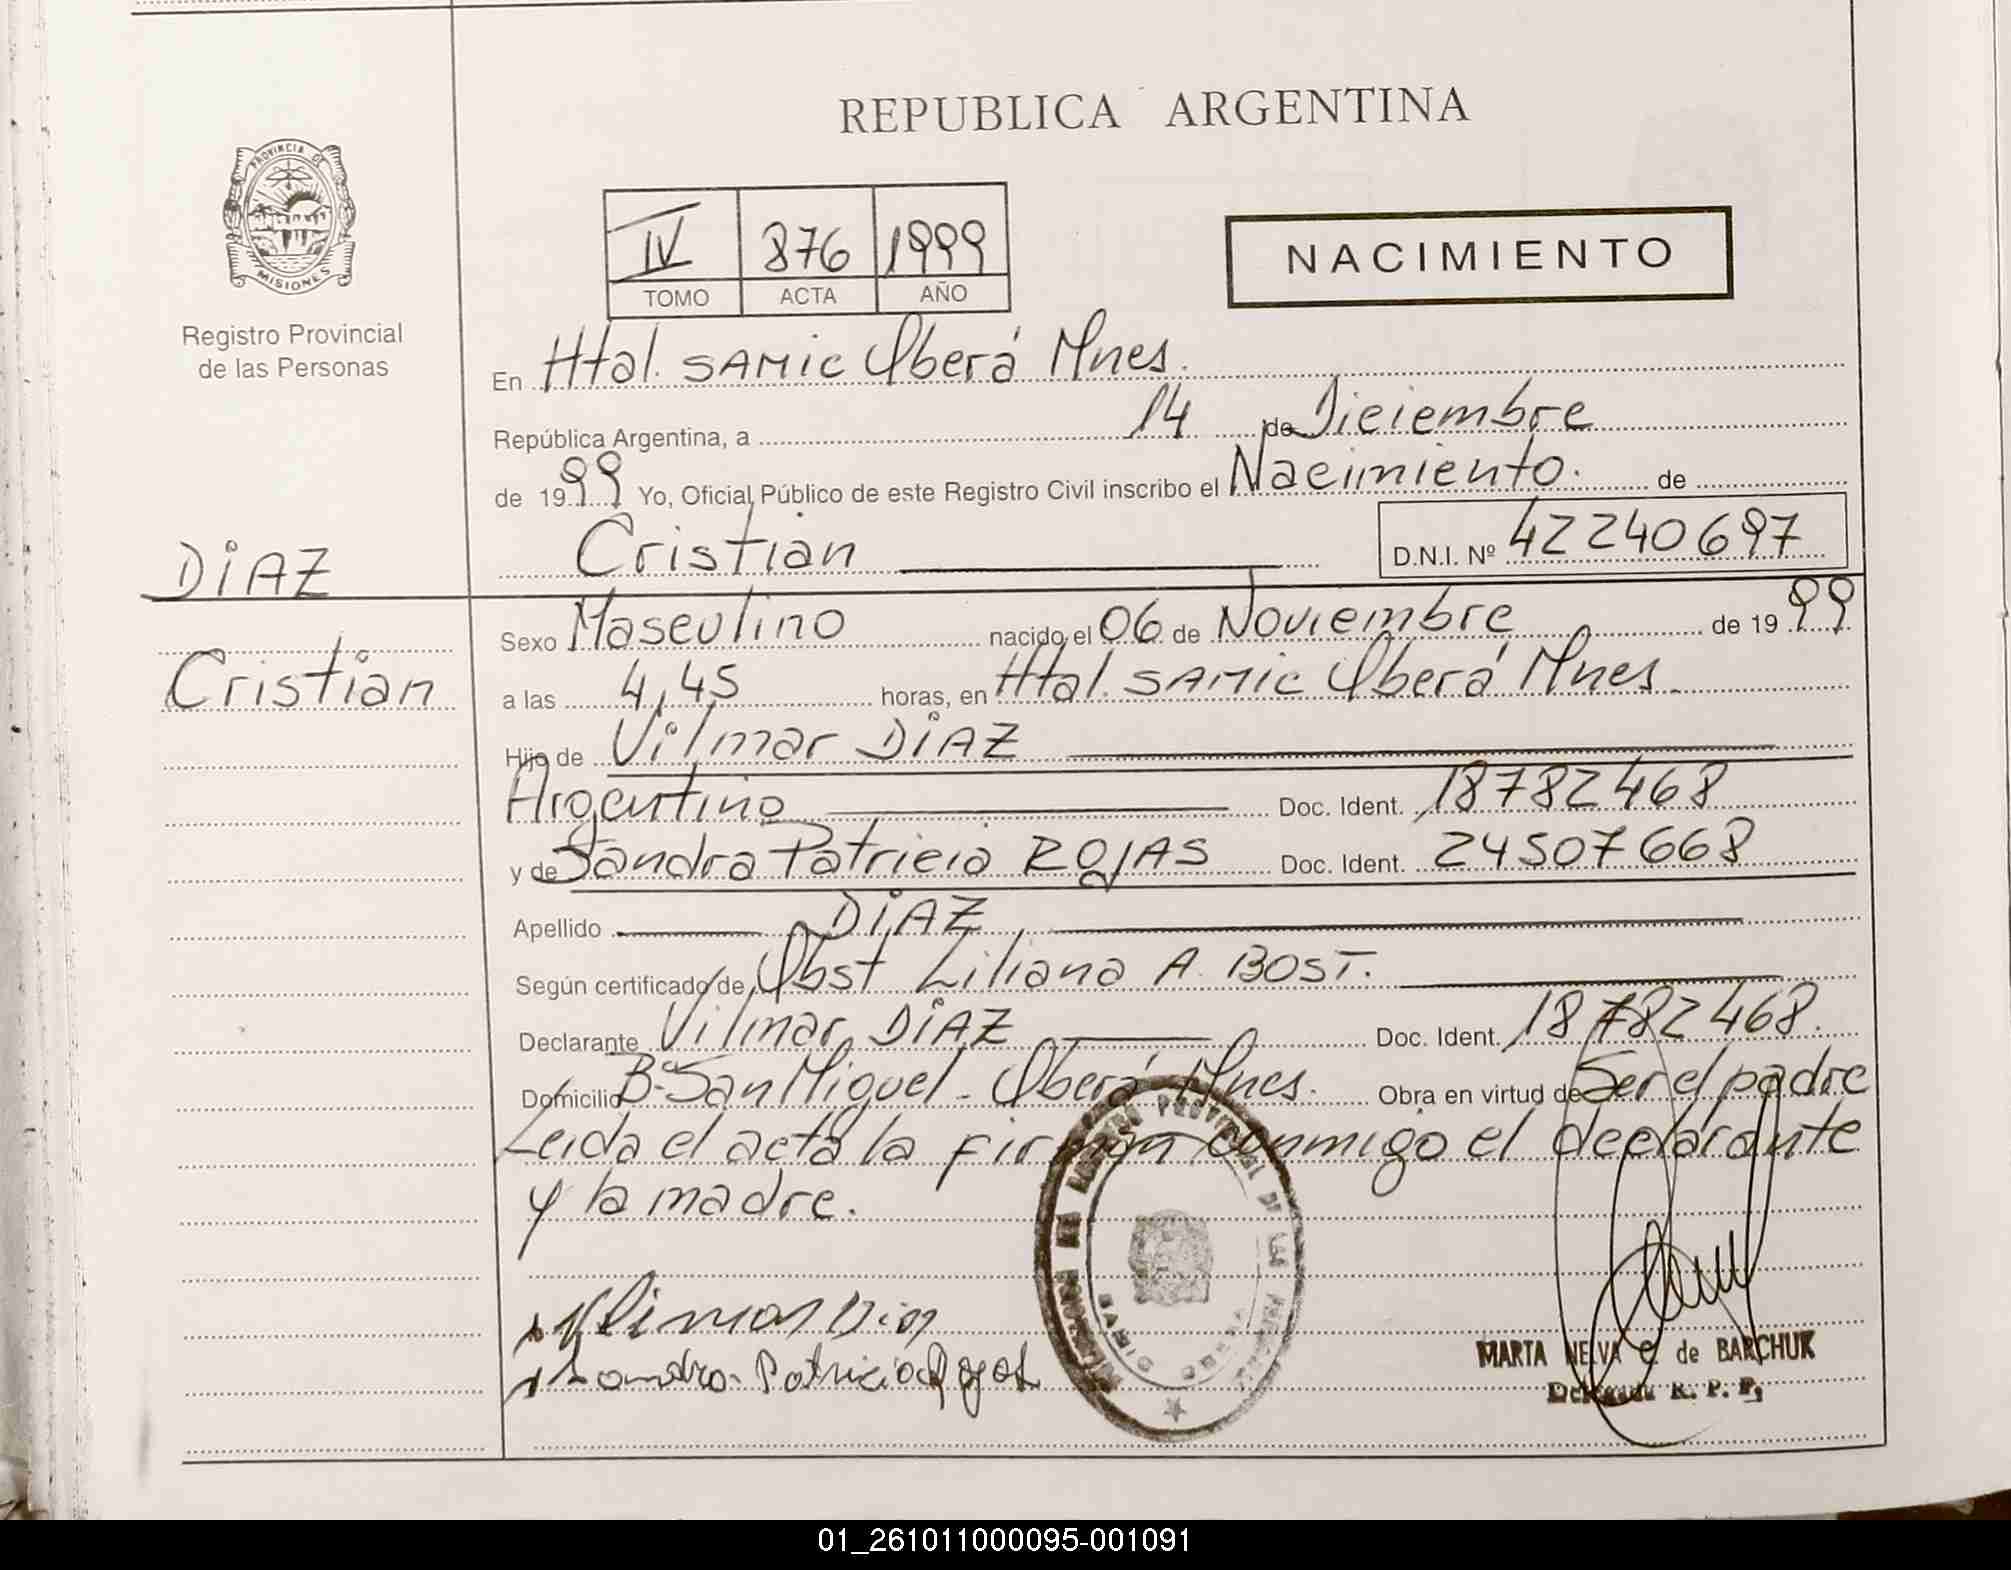 REPUBLICA ARGENTINA
PROVINCIA DE
MISIONES
Registro Provincial
de las Personas
IV 876 1999
TOMO ACTA AÑO
NACIMIENTO
En Htal. SAMIC Oberá Mnes.
República Argentina, a 14 de Diciembre
de 1999 Yo, Oficial Público de este Registro Civil inscribo el Nacimiento. de
Cristian D.N.I. Nº 42240697
DIAZ
Cristian
Sexo Masculino nacido el 06 de Noviembre de 1999
a las 4,45 horas, en Htal. SAMIC Oberá Mnes.
Hijo de Vilmar DIAZ
Argentino Doc. Ident. 18782468
y de Sandra Patricia ROJAS Doc. Ident. 24507668
Apellido DIAZ
Según certificado de Obst Liliana A. BOST.
Declarante Vilmar DIAZ Doc. Ident. 18782468.
Domicilio Bº San Miguel - Oberá Mnes. Obra en virtud de Ser el padre
Leida el acta la firman conmigo el declarante
y la madre.
Sandra Patricia Rojas
PROVINCIAL DE LAS
OBERA
MARTA NELVA C. de BARCHUK
Delegada R. P. P.
01_261011000095-001091